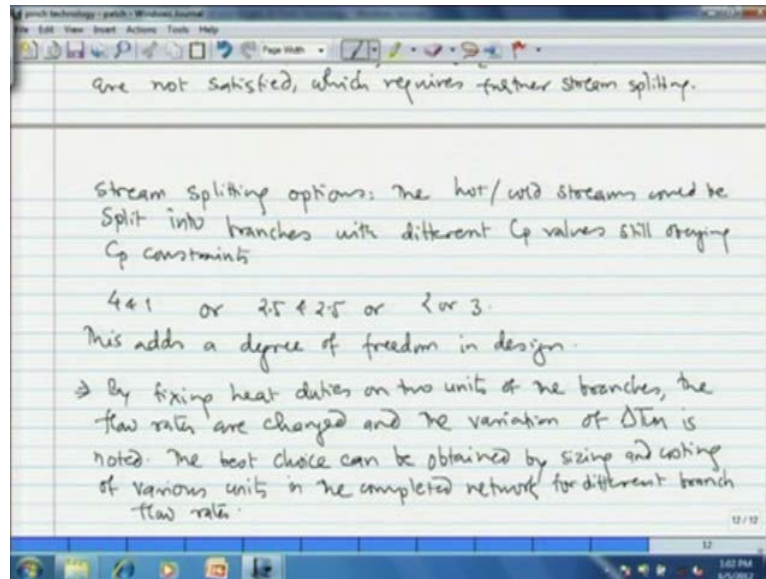 pinch technology - patch - Windows Journal
File Edit View Insert Actions Tools Help
Page Width
are not satisfied, which requires further stream splitting.
Stream splitting options: The hot/cold streams could be
split into branches with different Cp values still obeying
Cp constraints
4 & 1 or 2.5 & 2.5 or 2 or 3.
This adds a degree of freedom in design.
⇒ By fixing heat duties on two units of the branches, the
flow rates are changed and the variation of ΔTm is
noted. The best choice can be obtained by sizing and costing
of various units in the completed network for different branch
flow rates.
12 / 12
12
1:02 PM
6/5/2012